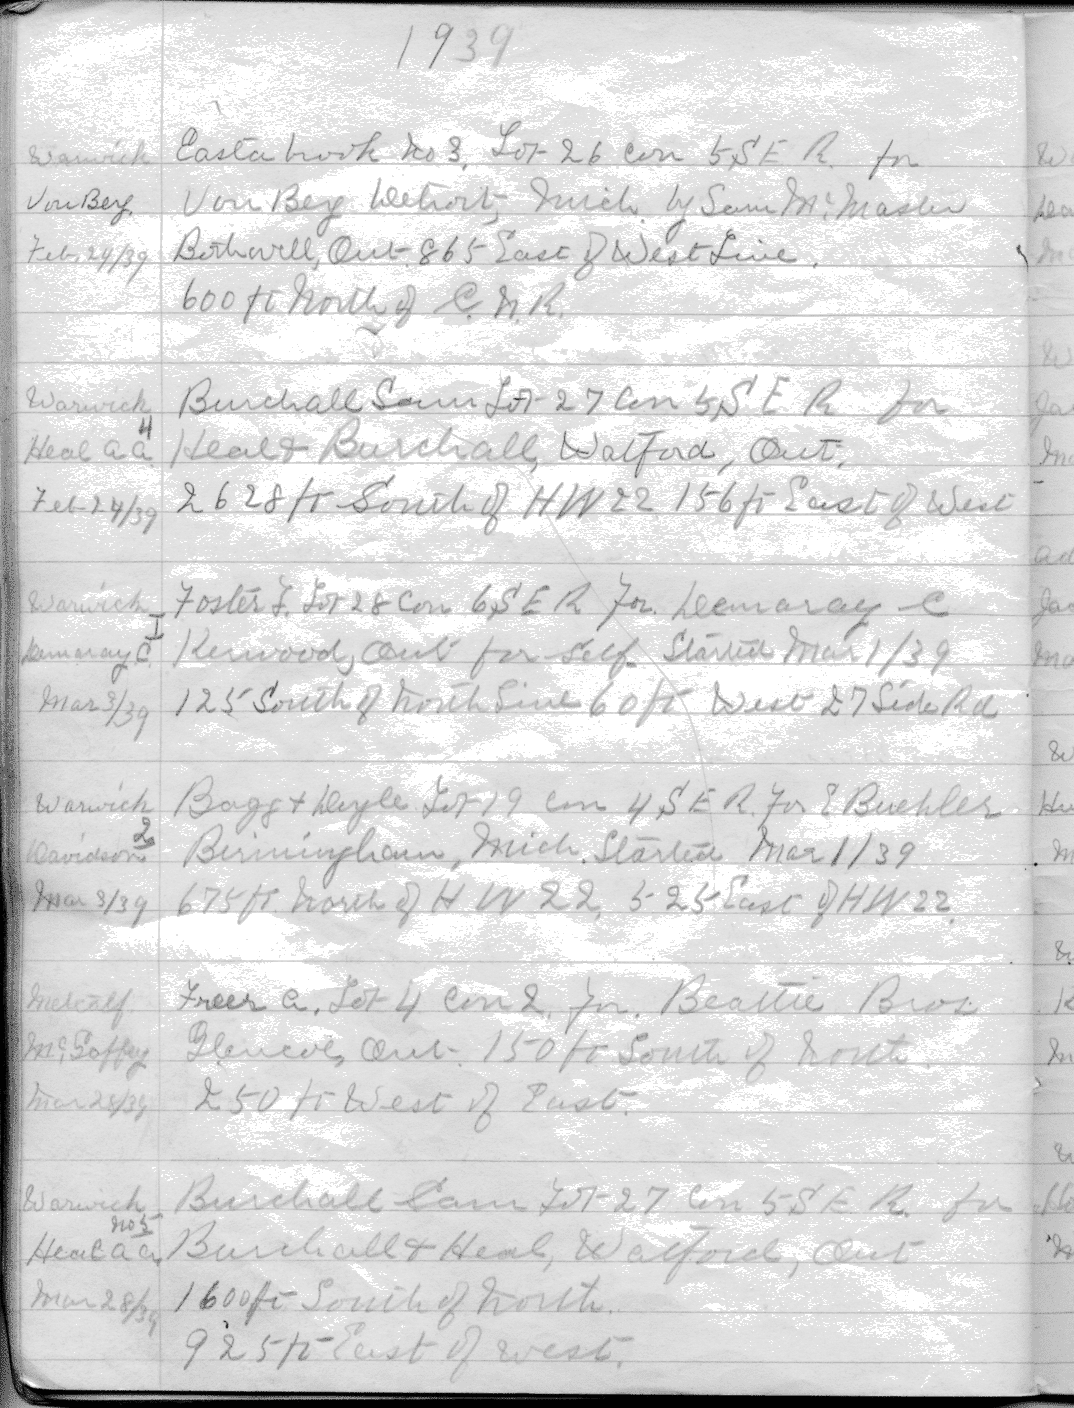 1939
Warwick Eastabrook No 3. Lot 26 Con 5 S E R. for
Von Berg. Von Berg Detroit, Mich. by Sam McMaster
Feb. 24/39 Bothwell, Ont. 865 East of West Line.
600 ft North of C. N. R.
Warwick Burchall Sam Lot 27 Con 5 S E R for
Heal A A. 4 Heal & Burchall, Watford, Ont.
Feb 24/39 2628 ft South of HW 22 156 ft East of West
Warwick Foster F. Lot 28 Con 6 S E R For. Demaray C
Demaray C. I Kerwood, Ont for self Started Mar 1/39
Mar 3/39 125 South of North Line 60 ft West 27 Side Rd
Warwick Bagg & Doyle Lot 19 Con 4 S E R. For E Buehler
Davidson 2 Birmingham, Mich. Started Mar 1/39
Mar 3/39 675 ft North of H W 22, 525 East of HW 22.
Metcalf Freer A. Lot 4 Con 2. for. Beattie Bros
Glencoe, Ont. 150 ft South of North.
Mar 28/39 250 ft West of East.
Warwick Burchall Sam Lot 27 Con 5 S E R. for
Heal A A. No 5 Burchall & Heal, Watford, Ont
Mar 28/39 1600 ft South of North.
925 ft East of West.